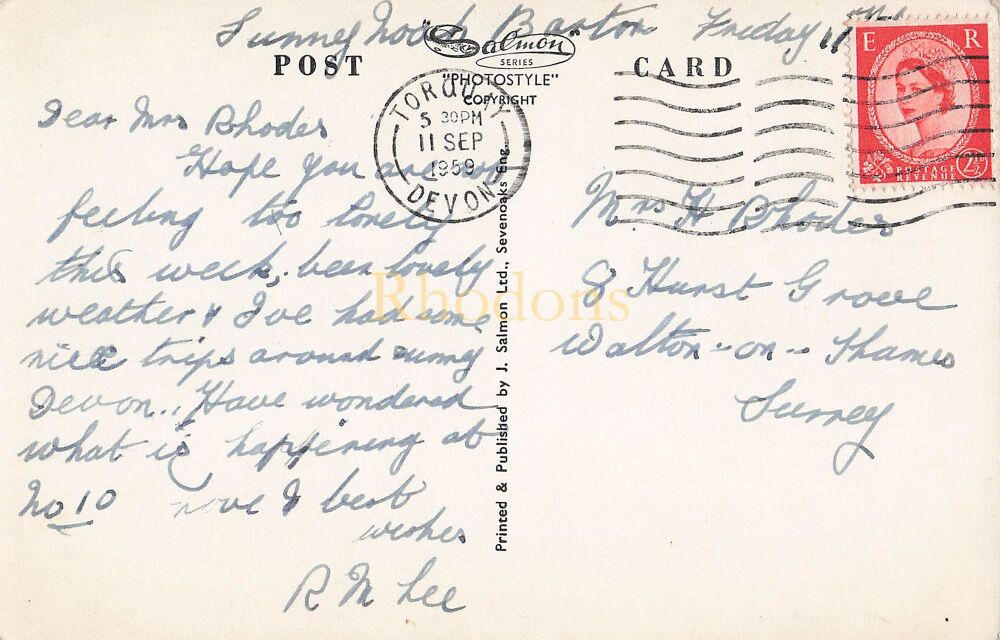 Sunny Nook Barton Friday 11th
POST CARD
Salmon
SERIES
"PHOTOSTYLE"
COPYRIGHT
TORQUAY
5 30PM
11 SEP
1959
DEVON
E R
POSTAGE
REVENUE
2½
Dear Mrs Rhodes
Hope you are not
feeling too lonely
this week, been lovely
weather & I've had some
nice trips around sunny
Devon.. Have wondered
what is happening at
No 10 & best
wishes
R M Lee
Printed & Published by J. Salmon Ltd., Sevenoaks Eng.
Mrs H Rhodes
8 Hurst Grove
Walton-on-Thames
Surrey
Rhodons